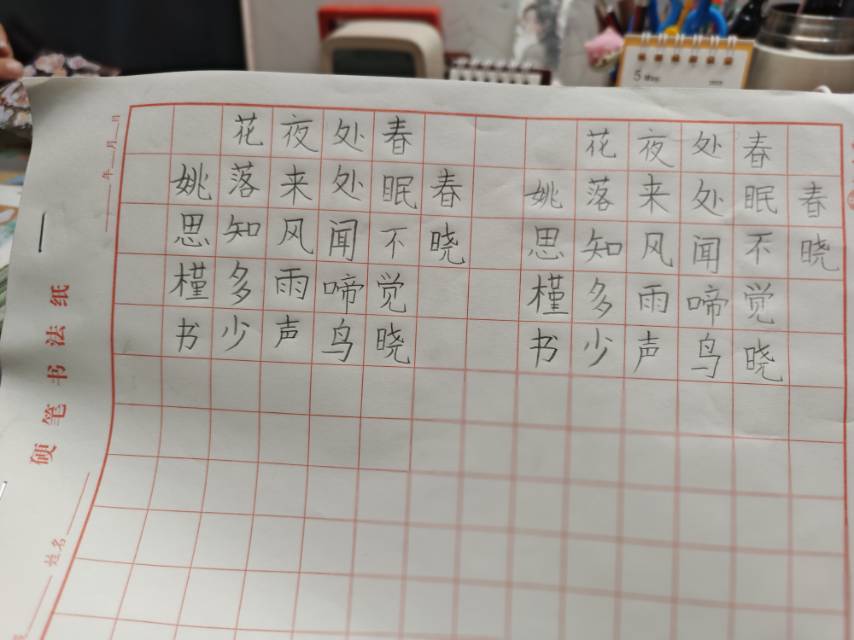 春晓
春眠不觉晓
处处闻啼鸟
夜来风雨声
花落知多少
姚思槿书
春晓
春眠不觉晓
处处闻啼鸟
夜来风雨声
花落知多少
姚思槿书
硬笔书法纸
年 月 日
姓名
5